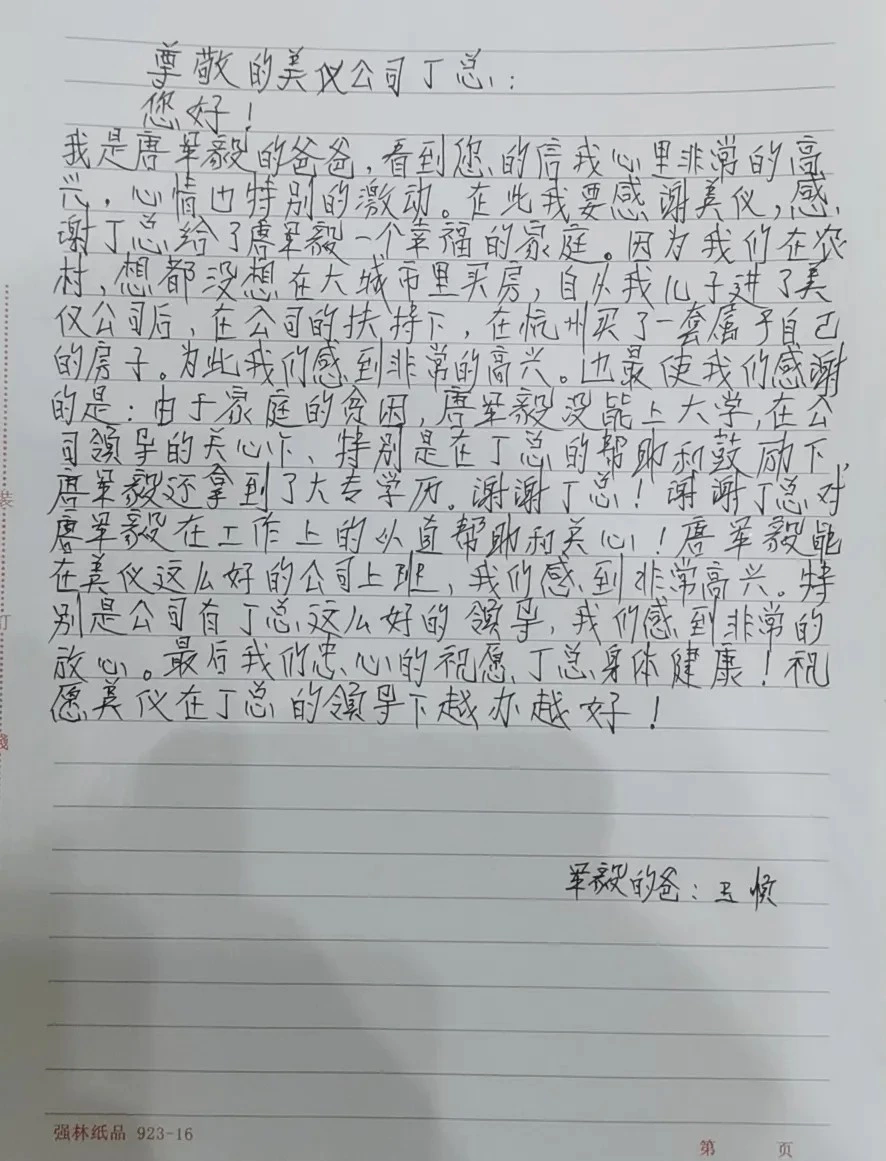 尊敬的美仪公司丁总:
您好!
我是唐军毅的爸爸,看到您的信我心里非常的高
兴,心情也特别的激动。在此我要感谢美仪,感
谢丁总给了唐军毅一个幸福的家庭。因为我们在农
村,想都没想在大城市里买房,自从我儿子进了美
仪公司后,在公司的扶持下,在杭州买了一套属于自己
的房子。为此我们感到非常的高兴。也最使我们感谢
的是:由于家庭的贫困,唐军毅没能上大学,在公
司领导的关心下、特别是在丁总的帮助和鼓励下,
唐军毅还拿到了大专学历。谢谢丁总!谢谢丁总对
唐军毅在工作上的从直帮助和关心!唐军毅能
在美仪这么好的公司上班,我们感到非常高兴。特
别是公司有丁总这么好的领导,我们感到非常的
放心。最后我们忠心的祝愿丁总身体健康!祝
愿美仪在丁总的领导下越办越好!
军毅的爸:
强林纸品 923-16
第 页
装
订
线